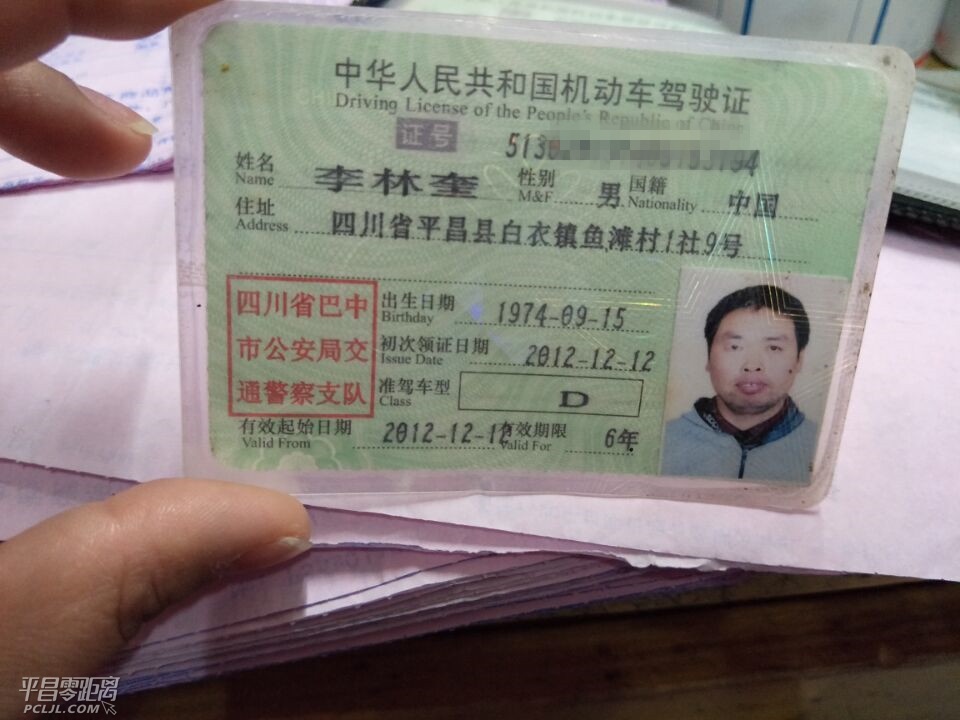 中华人民共和国机动车驾驶证
Driving License of the People's Republic of China
证号
姓名 李林奎 性别 男 国籍 中国
Name M&F Nationality
住址 四川省平昌县白衣镇鱼滩村1社9号
Address
四川省巴中
市公安局交
通警察支队
出生日期 1974-09-15
Birthday
初次领证日期 2012-12-12
Issue Date
准驾车型 D
Class
有效起始日期 2012-12-12 有效期限 6年
Valid From Valid For
平昌零距离
PCLJL.COM